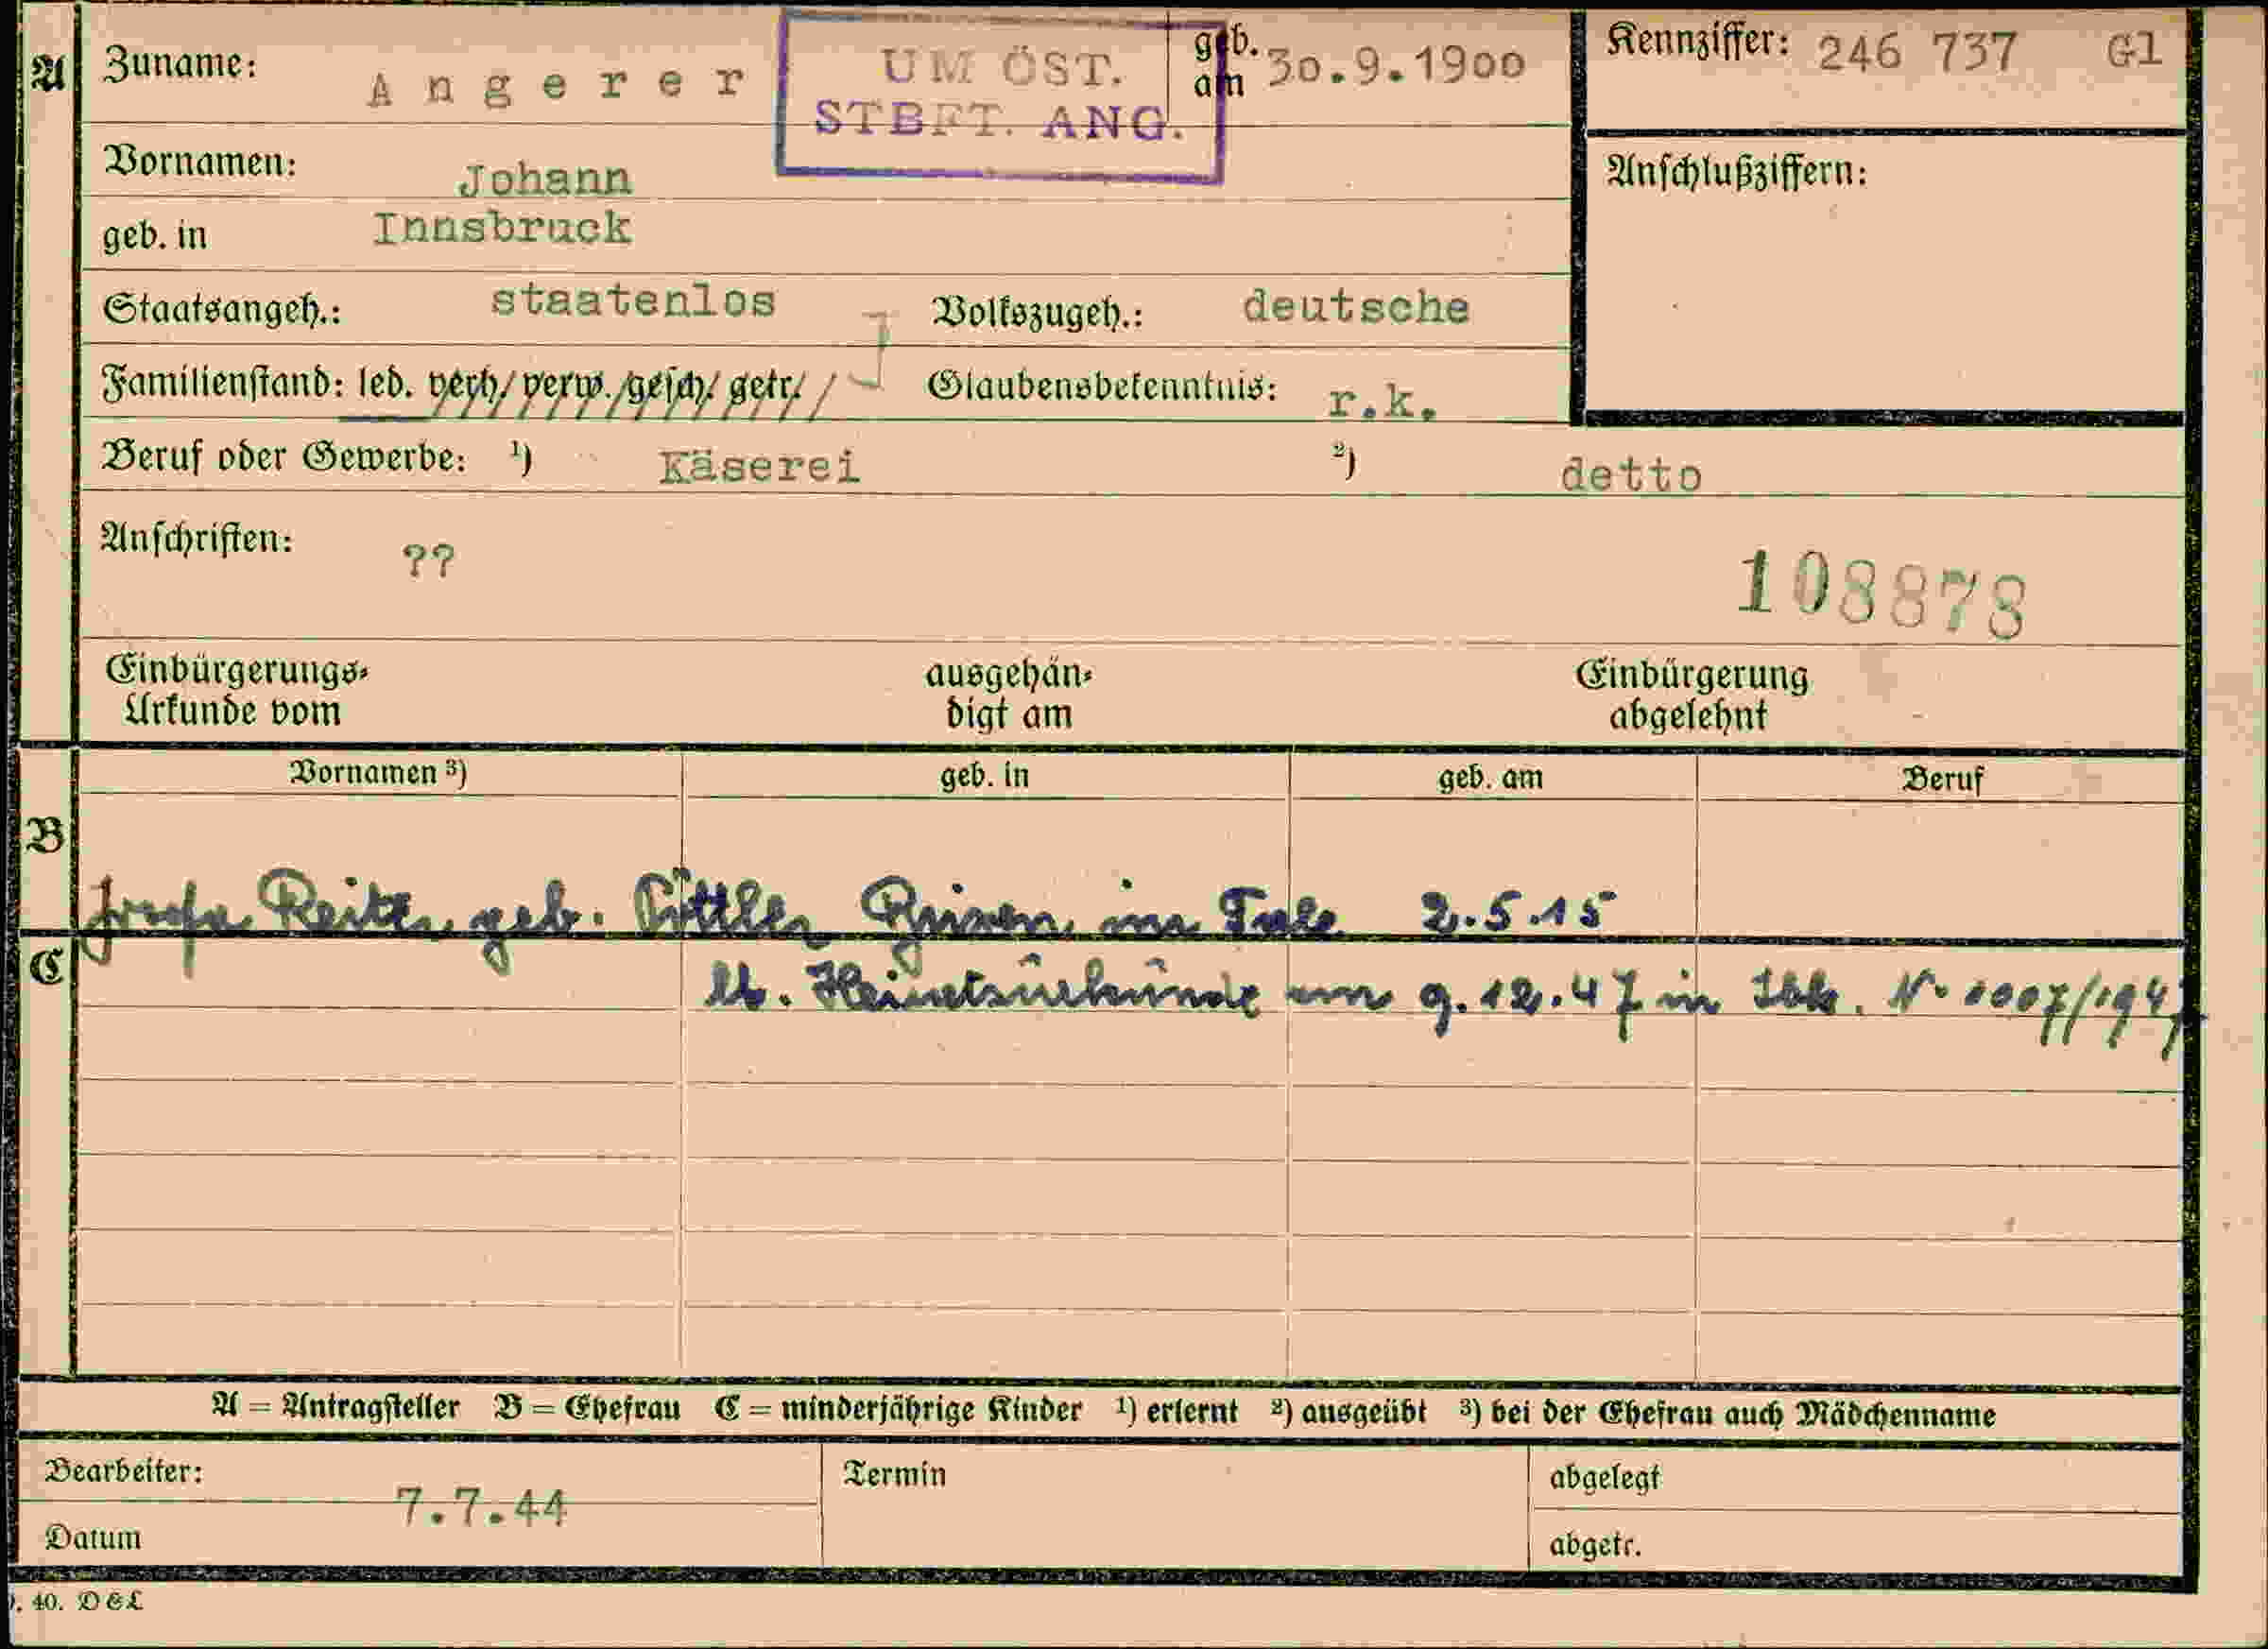 A Zuname: Angerer geb. am 30.9.1900 Kennziffer: 246 737 Gl
UM ÖST.
STBFT. ANG.
Vornamen: Johann Anschlußziffern:
geb. in Innsbruck
Staatsangeh.: staatenlos Volkszugeh.: deutsche
Familienstand: led. verh. verw. gesch. getr. Glaubensbekenntnis: r.k.
Beruf oder Gewerbe: ¹) Käserei ²) detto
Anschriften: ??
108878
Einbürgerungs- ausgehän- Einbürgerung
Urkunde vom digt am abgelehnt
Vornamen ³) geb. in geb. am Beruf
B
Josefa Reiter geb. im Tale 2.5.15
C
lt. Heiratsurkunde am 9.12.47 in Ibk. No 1007/1947
A = Antragsteller B = Ehefrau C = minderjährige Kinder ¹) erlernt ²) ausgeübt ³) bei der Ehefrau auch Mädchenname
Bearbeiter: Termin abgelegt
7.7.44
Datum abgetr.
40. D&L